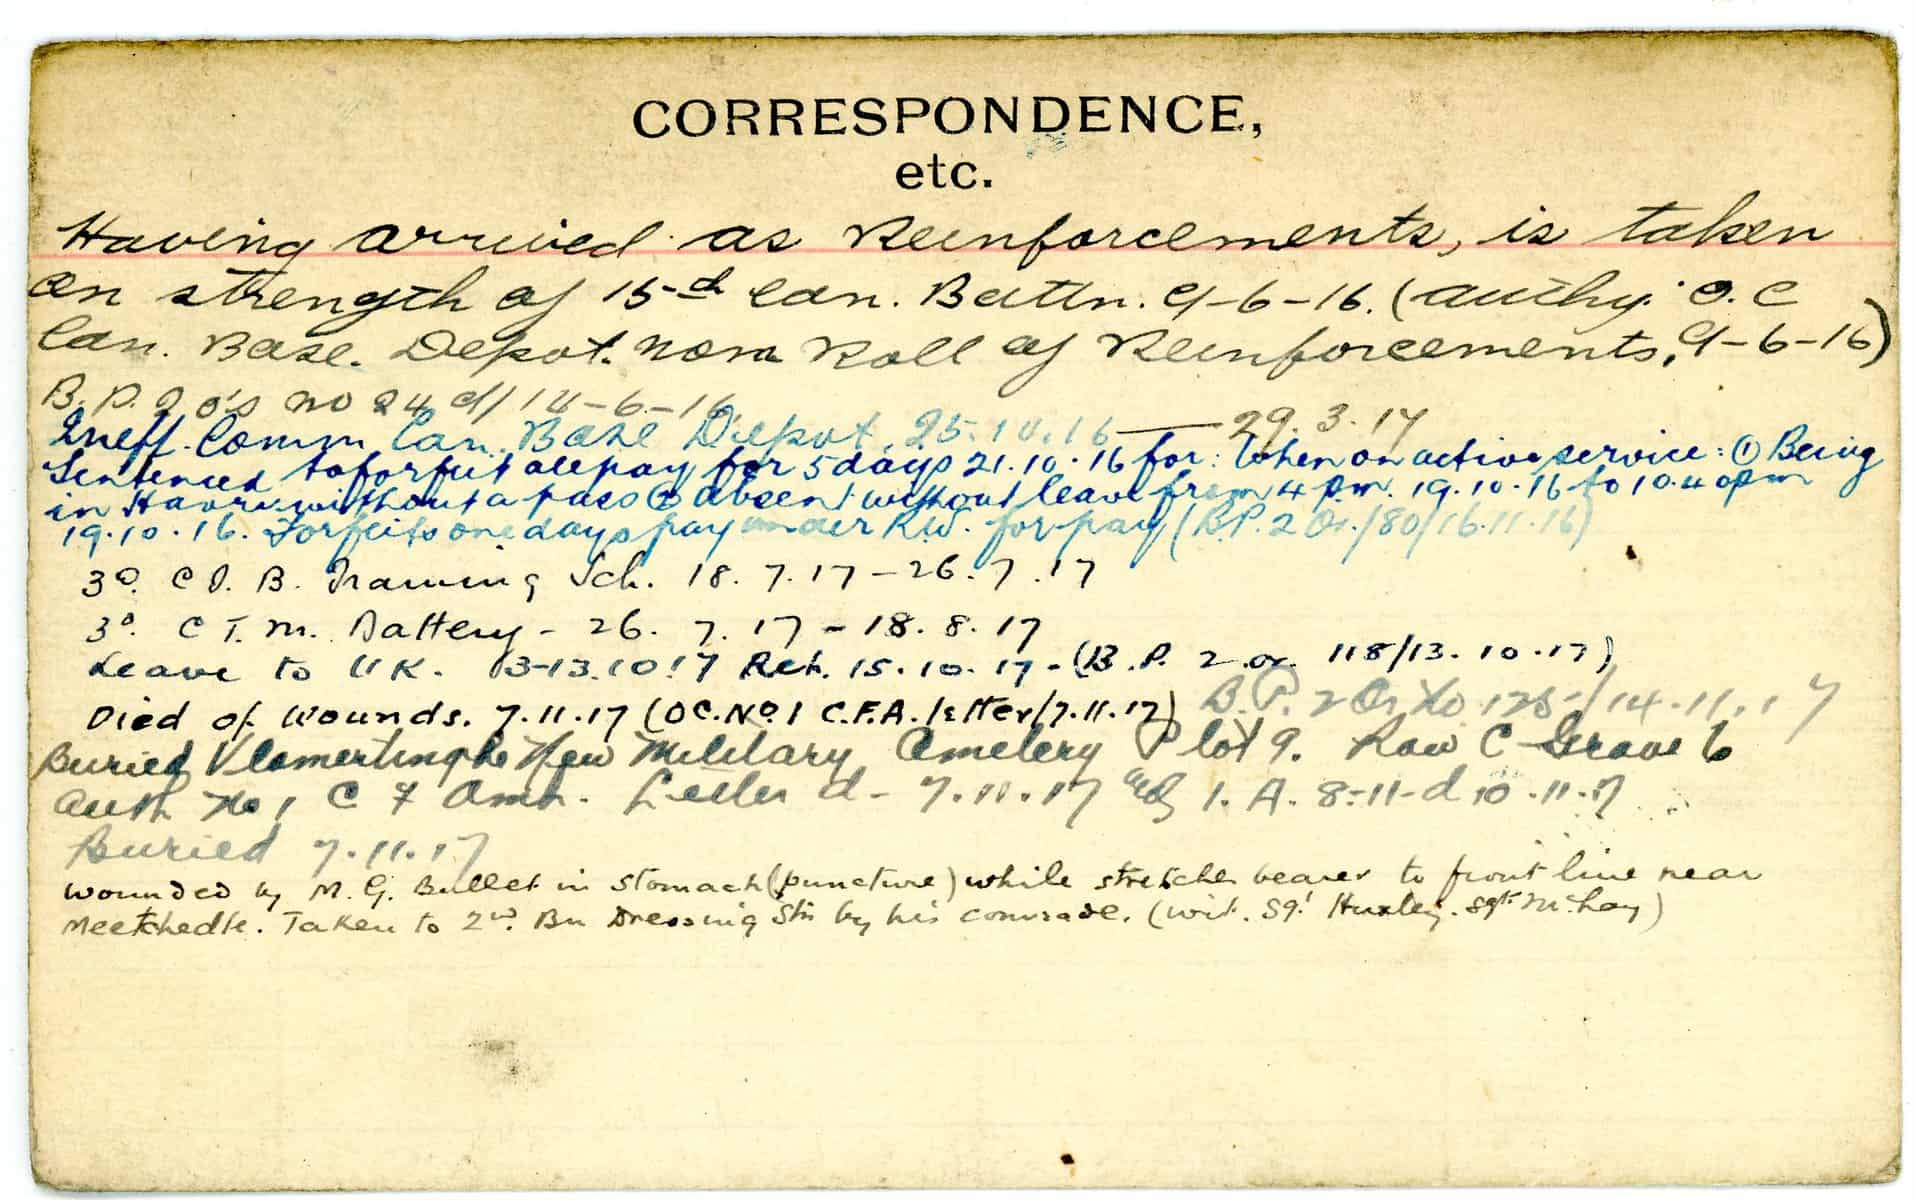 CORRESPONDENCE,
etc.
Having arrived as Reinforcements, is taken
on strength of 15th Can. Battn. 9-6-16. (Authy: O.C
Can. Base. Depot. Nom Roll of Reinforcements, 9-6-16)
B.P. 2 O's No 24 d/ 14-6-16
Ineff. Comm Can. Base Depot, 25.10.16 — 29.3.17
Sentenced to forfeit all pay for 5 days 21.10.16 for: When on active service: ① Being
in Havre without a pass ② absent without leave from 4 p.m. 19.10.16 to 10.40 pm
19.10.16. Forfeits one days pay under R.W. for pay (B.P. 2 Or./80/16.11.16)
3º. C I. B. Training Sch. 18.7.17-26.7.17
3º. C T.M. Battery - 26.7.17-18.8.17
Leave to UK. 3-13.10.17 Ret. 15.10.17-(B.P. 2 or. 118/13.10.17)
Died of Wounds. 7.11.17 (OC. No. 1 C.F.A. letter/7.11.17) B.P. 2 Or No 125/14.11.17
Buried Vlamertinghe New Military Cemetery Plot 9. Row C Grave 6
Auth No 1 C F Amb. Letter d- 7.11.17 and I.A. 8-11-d 10.11.17
Buried 7.11.17
Wounded by M.G. Bullet in stomach (puncture) while stretcher bearer to front line near
Meetchedle. Taken to 2nd. Bn Dressing Stn by his comrade. (wit. Sgt Huxley. Sgt McLay)